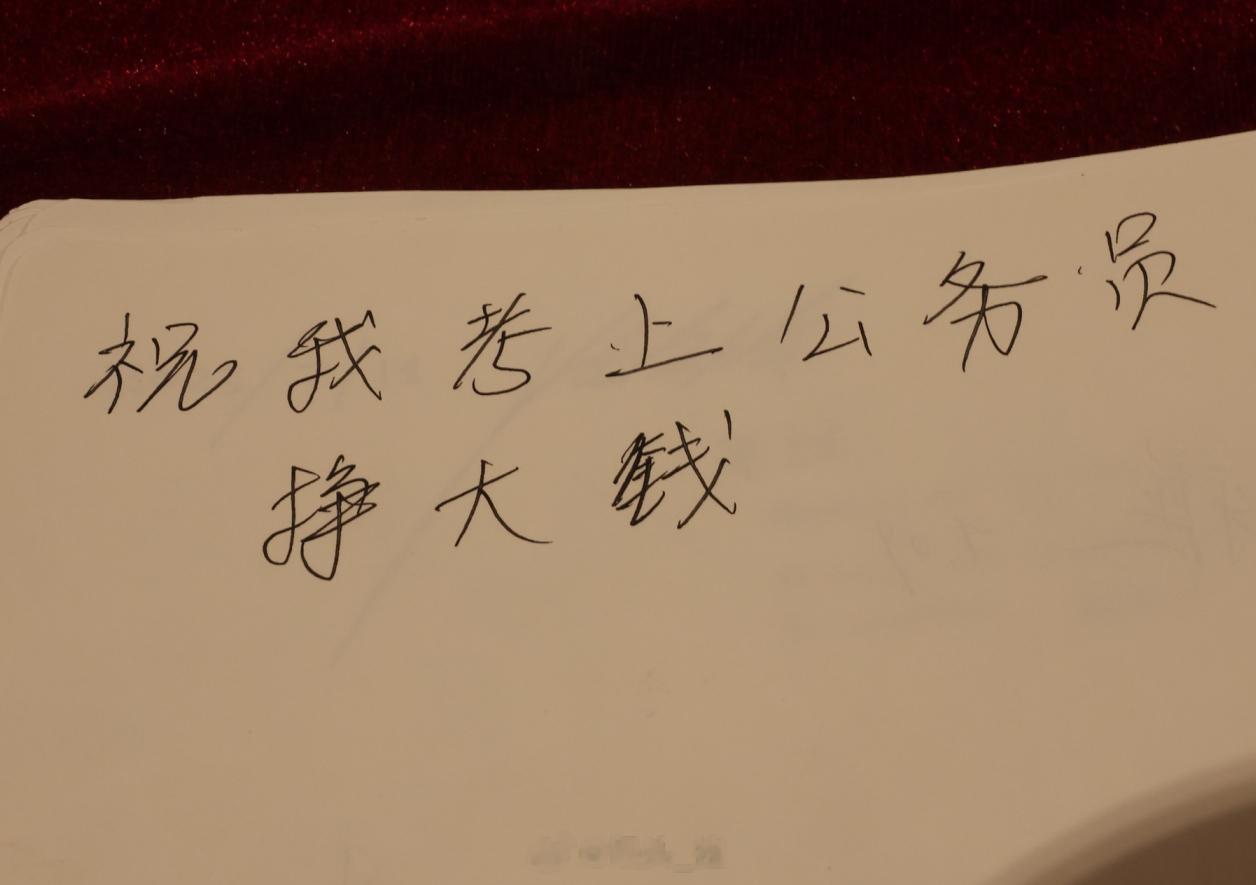 祝我考上公务员
挣大钱